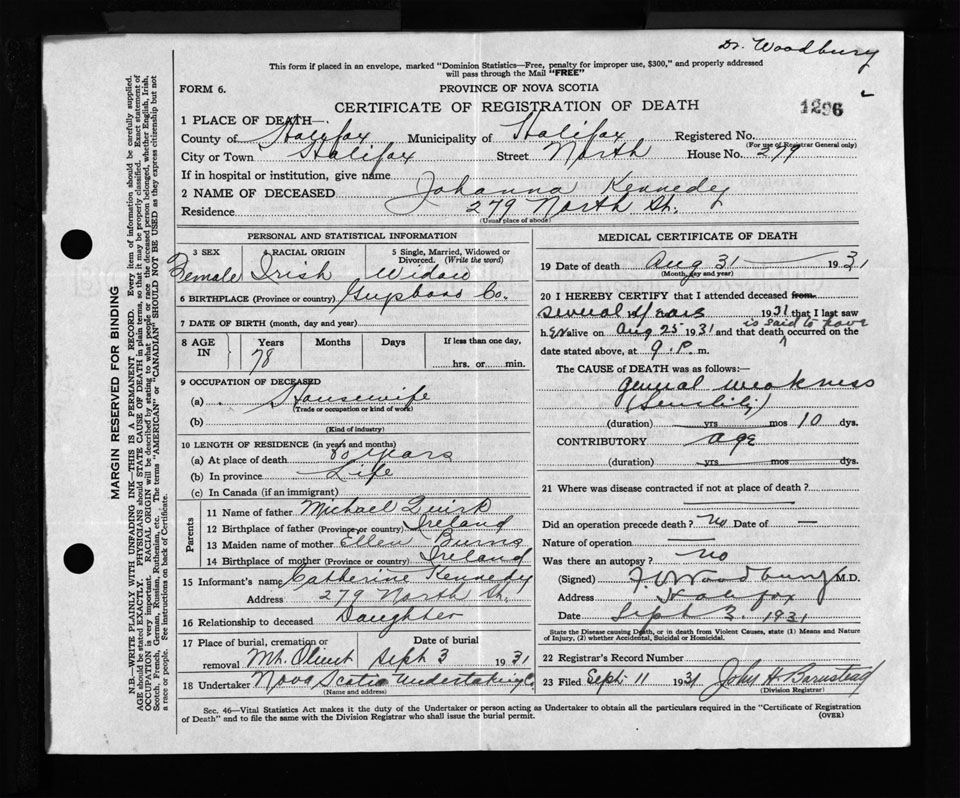 Dr. Woodbury
This form if placed in an envelope, marked "Dominion Statistics—Free, penalty for improper use, $300," and properly addressed
will pass through the Mail "FREE"
FORM 6.
PROVINCE OF NOVA SCOTIA
CERTIFICATE OF REGISTRATION OF DEATH
1296
1 PLACE OF DEATH—
County of Halifax Municipality of Halifax Registered No.
(For use of Registrar General only)
City or Town Halifax Street North House No. 279
If in hospital or institution, give name
2 NAME OF DECEASED Johanna Kennedy
Residence 279 North St.
(Usual place of abode)
PERSONAL AND STATISTICAL INFORMATION
3 SEX 4 RACIAL ORIGIN 5 Single, Married, Widowed or
Divorced. (Write the word)
Female Irish Widow
6 BIRTHPLACE (Province or country) Guysboro Co.
7 DATE OF BIRTH (month, day and year)
8 AGE IN Years Months Days If less than one day,
78 hrs. or min.
9 OCCUPATION OF DECEASED
(a) Housewife
(Trade or occupation or kind of work)
(b)
(Kind of industry)
10 LENGTH OF RESIDENCE (in years and months)
(a) At place of death years
(b) In province Life
(c) In Canada (if an immigrant)
Parents
11 Name of father Michael Quirk
12 Birthplace of father (Province or country) Ireland
13 Maiden name of mother Ellen Burns
14 Birthplace of mother (Province or country) Ireland
15 Informant's name Catherine Kennedy
Address 279 North St.
16 Relationship to deceased Daughter
17 Place of burial, cremation or Date of burial
removal Mt. Olivet Sept 3 1931
18 Undertaker Nova Scotia Undertaking Co
(Name and address)
MEDICAL CERTIFICATE OF DEATH
19 Date of death Aug 31 1931
(Month, day and year)
20 I HEREBY CERTIFY that I attended deceased from
several years 1931 that I last saw
is said to have
her alive on Aug 25 1931 and that death occurred on the
date stated above, at 9 P. m.
The CAUSE of DEATH was as follows:—
general weakness
(Senility)
(duration) yrs mos 10 dys.
CONTRIBUTORY age
(duration) yrs mos. dys.
21 Where was disease contracted if not at place of death?
Did an operation precede death? no Date of —
Nature of operation
Was there an autopsy? no
(Signed) Woodbury M.D.
Address Halifax
Date Sept 3. 1931
State the Disease causing Death, or in death from Violent Causes, state (1) Means and Nature
of Injury, (2) whether Accidental, Suicidal or Homicidal.
22 Registrar's Record Number
23 Filed Sept 11 1931 John H. Barnstead
(Division Registrar)
Sec. 46—Vital Statistics Act makes it the duty of the Undertaker or person acting as Undertaker to obtain all the particulars required in the "Certificate of Registration
of Death" and to file the same with the Division Registrar who shall issue the burial permit.
(OVER)
MARGIN RESERVED FOR BINDING
N.B. WRITE PLAINLY, WITH UNFADING INK—THIS IS A PERMANENT RECORD. Every item of information should be carefully supplied.
AGE should be stated EXACTLY. PHYSICIANS should STATE CAUSE OF DEATH in plain terms, so that it may be properly classified. Exact statement of
OCCUPATION is very important. RACIAL ORIGIN will be described by stating to what people or race the deceased person belonged, whether English, Irish,
Scotch, French, German, Russian, Ruthenian, etc. The terms "AMERICAN" or "CANADIAN" SHOULD NOT BE USED as they express citizenship but not
a race or people. See instructions on back of Certificate.